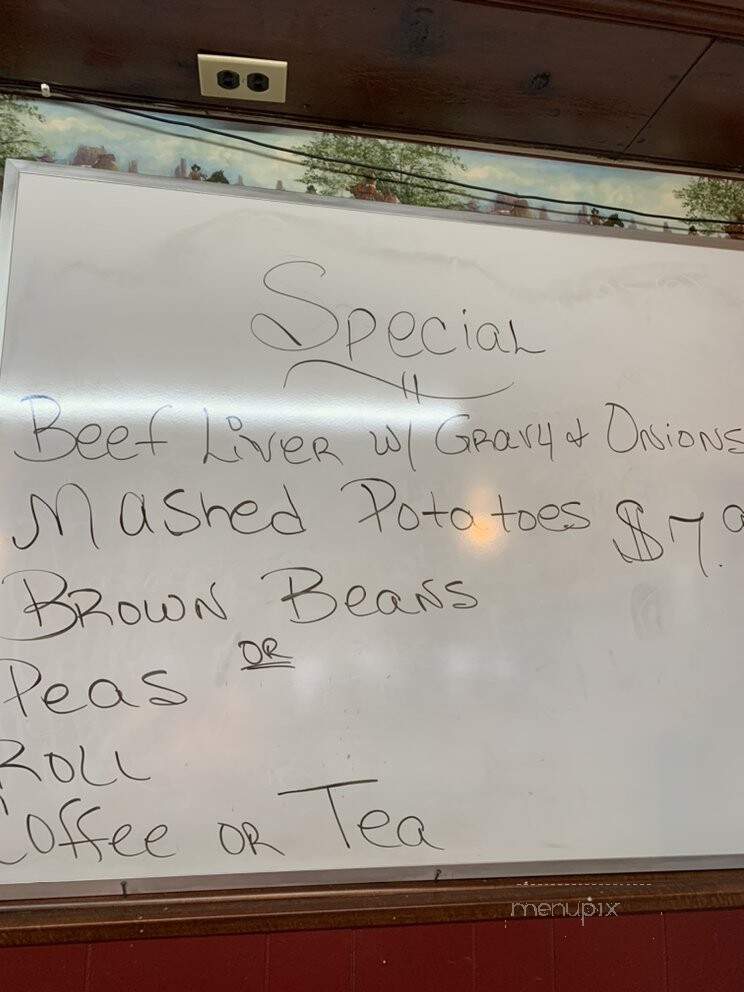 Special
Beef Liver w/ Gravy & Onions
Mashed Potatoes $7.
Brown Beans
OR
Peas
Roll
Coffee OR Tea
menupix